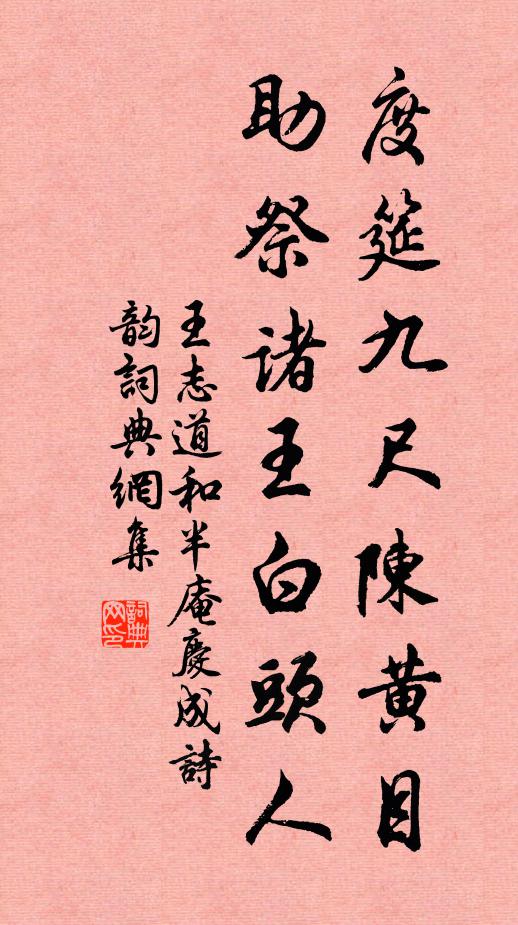 度筵九尺陳黃目
助祭诸王白頭人
王志道和半庵慶成詩
韵詞典網集
詞典網印